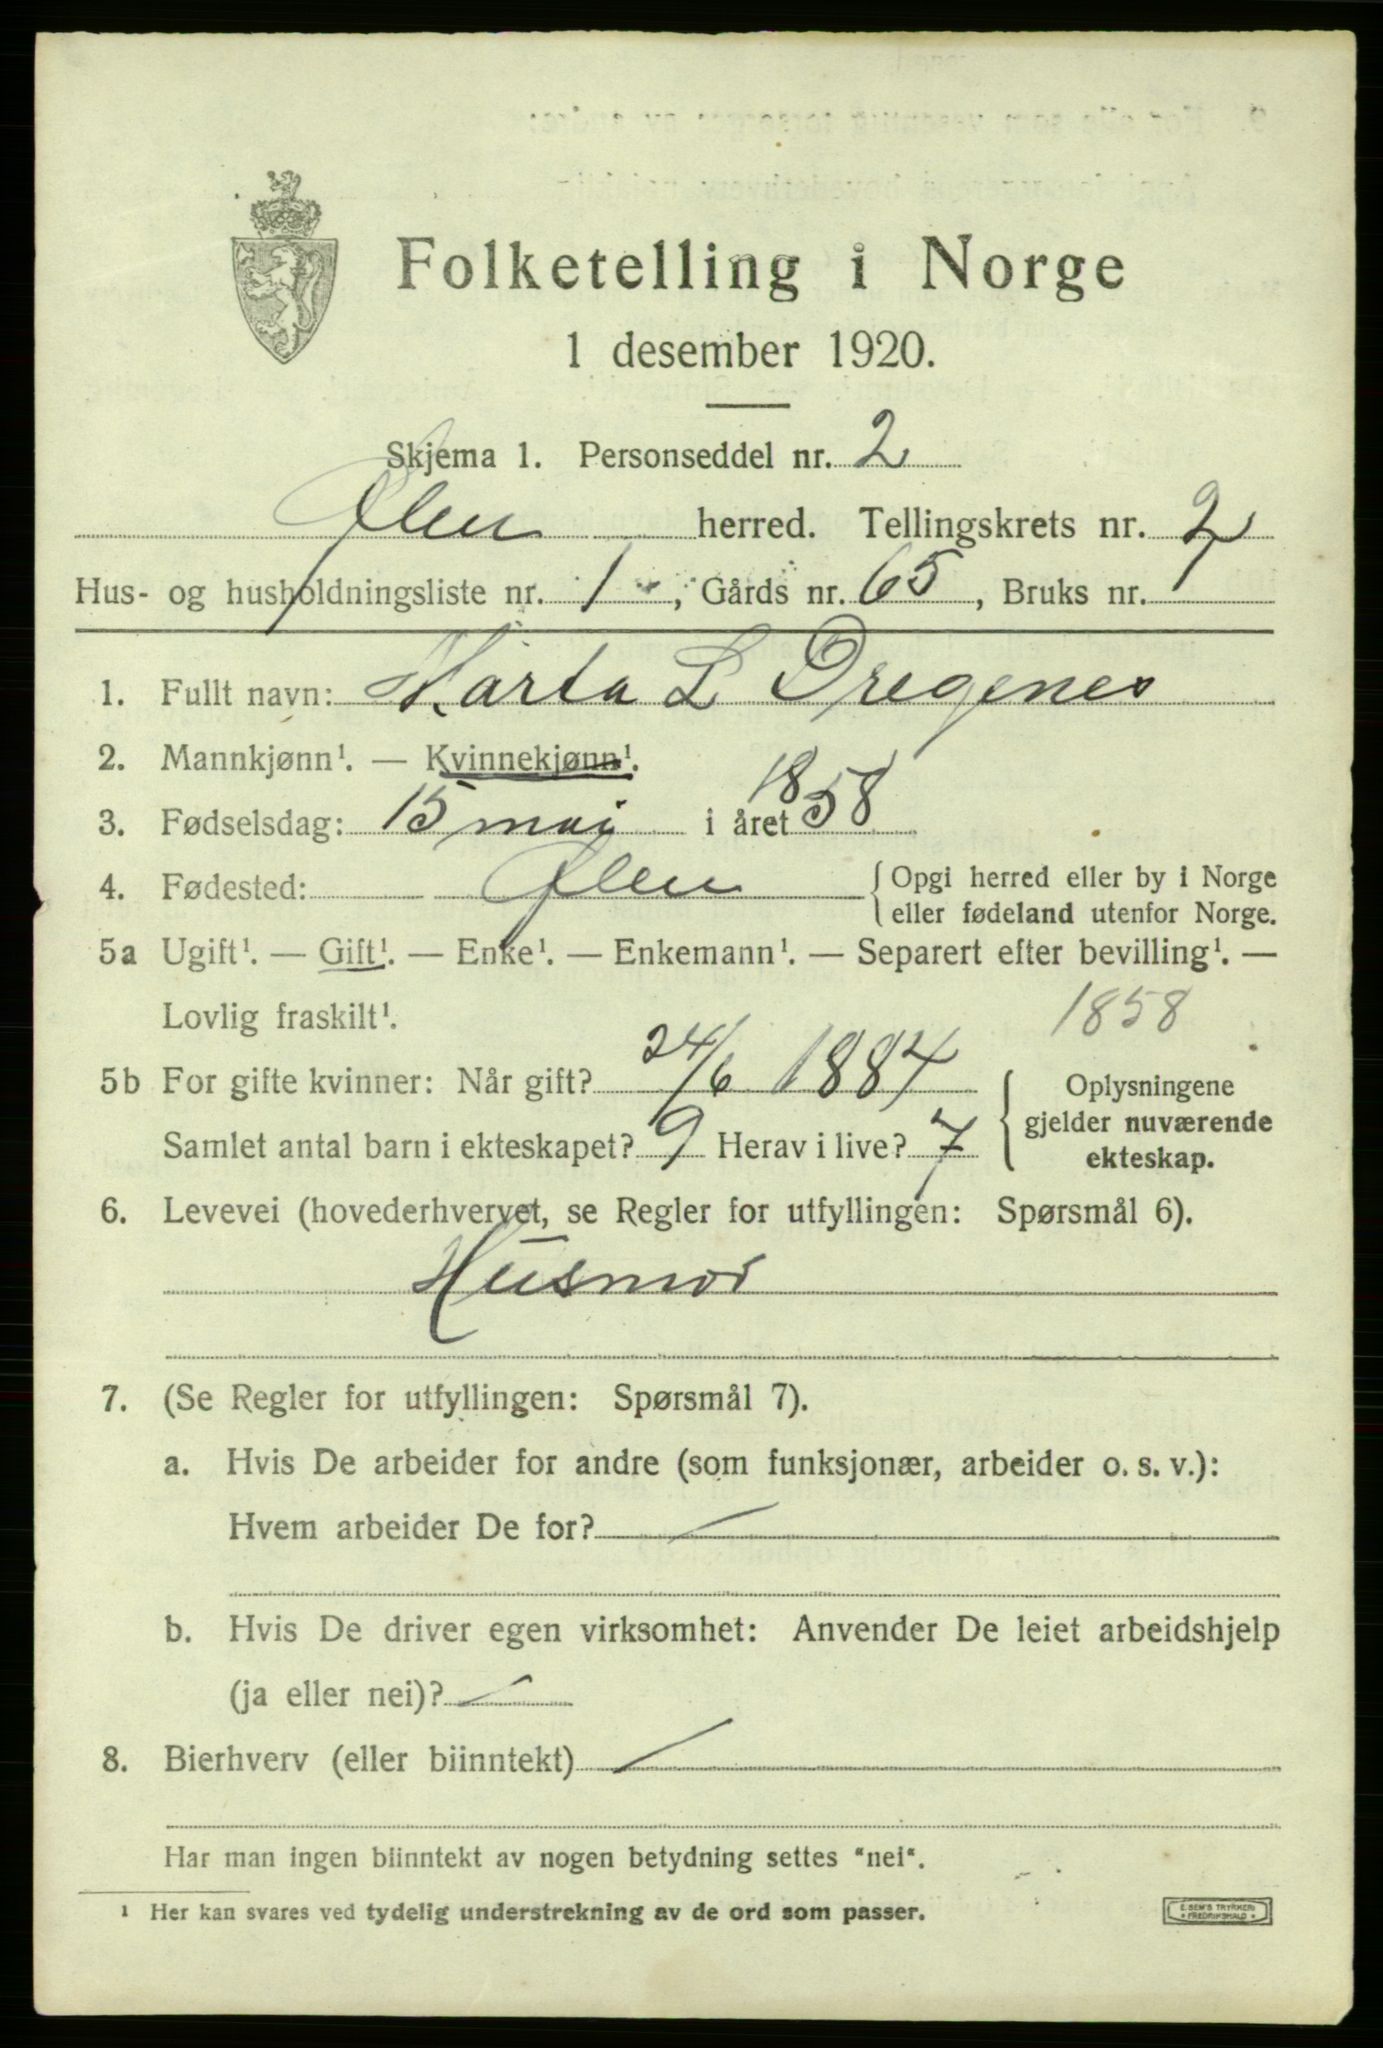 Folketelling i Norge
1 desember 1920.
Skjema 1. Personseddel nr. 2
Ølen herred. Tellingskrets nr. 2
Hus- og husholdningsliste nr. 1, Gårds nr. 65, Bruks nr. 1
1. Fullt navn: Marta L Dregenes
2. Mannkjønn¹. — Kvinnekjønn¹.
3. Fødselsdag: 15 mai i året 1858
4. Fødested: Ølen {Opgi herred eller by i Norge
eller fødeland utenfor Norge.
5a Ugift¹. — Gift¹. — Enke¹. — Enkemann¹. — Separert efter bevilling¹. —
Lovlig fraskilt¹. 1858
5b For gifte kvinner: Når gift? 24/6 1884 { Oplysningene
gjelder nuværende
Samlet antal barn i ekteskapet? 9 Herav i live? 7 ekteskap.
6. Levevei (hovederhvervet, se Regler for utfyllingen: Spørsmål 6).
Husmor
7. (Se Regler for utfyllingen: Spørsmål 7).
a. Hvis De arbeider for andre (som funksjonær, arbeider o. s. v.):
Hvem arbeider De for? /
b. Hvis De driver egen virksomhet: Anvender De leiet arbeidshjelp
(ja eller nei)? /
8. Bierhverv (eller biinntekt) /
Har man ingen biinntekt av nogen betydning settes "nei".
¹ Her kan svares ved tydelig understrekning av de ord som passer.
E. SEM'S TRYKKERI
FREDRIKSHALD